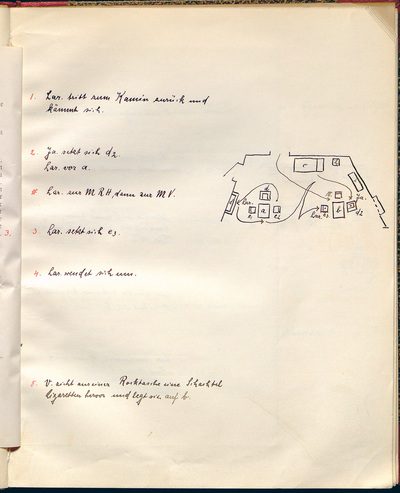 1. Lar. tritt zum Kamin zurück und
kämmt sich.
2. Ja. setzt sich d2.
Lar. vor a.
Lar. zur M R H, dann zur M V.
3.
3 Lar. setzt sich e3.
4. Lar. wendet sich um.
5. V. zieht aus einer Rocktasche eine Schachtel
Cigaretten hervor und legt sie auf b.
c
Ja.
Lar.
d
a
e1
e2
Lar.
e3
b
d2